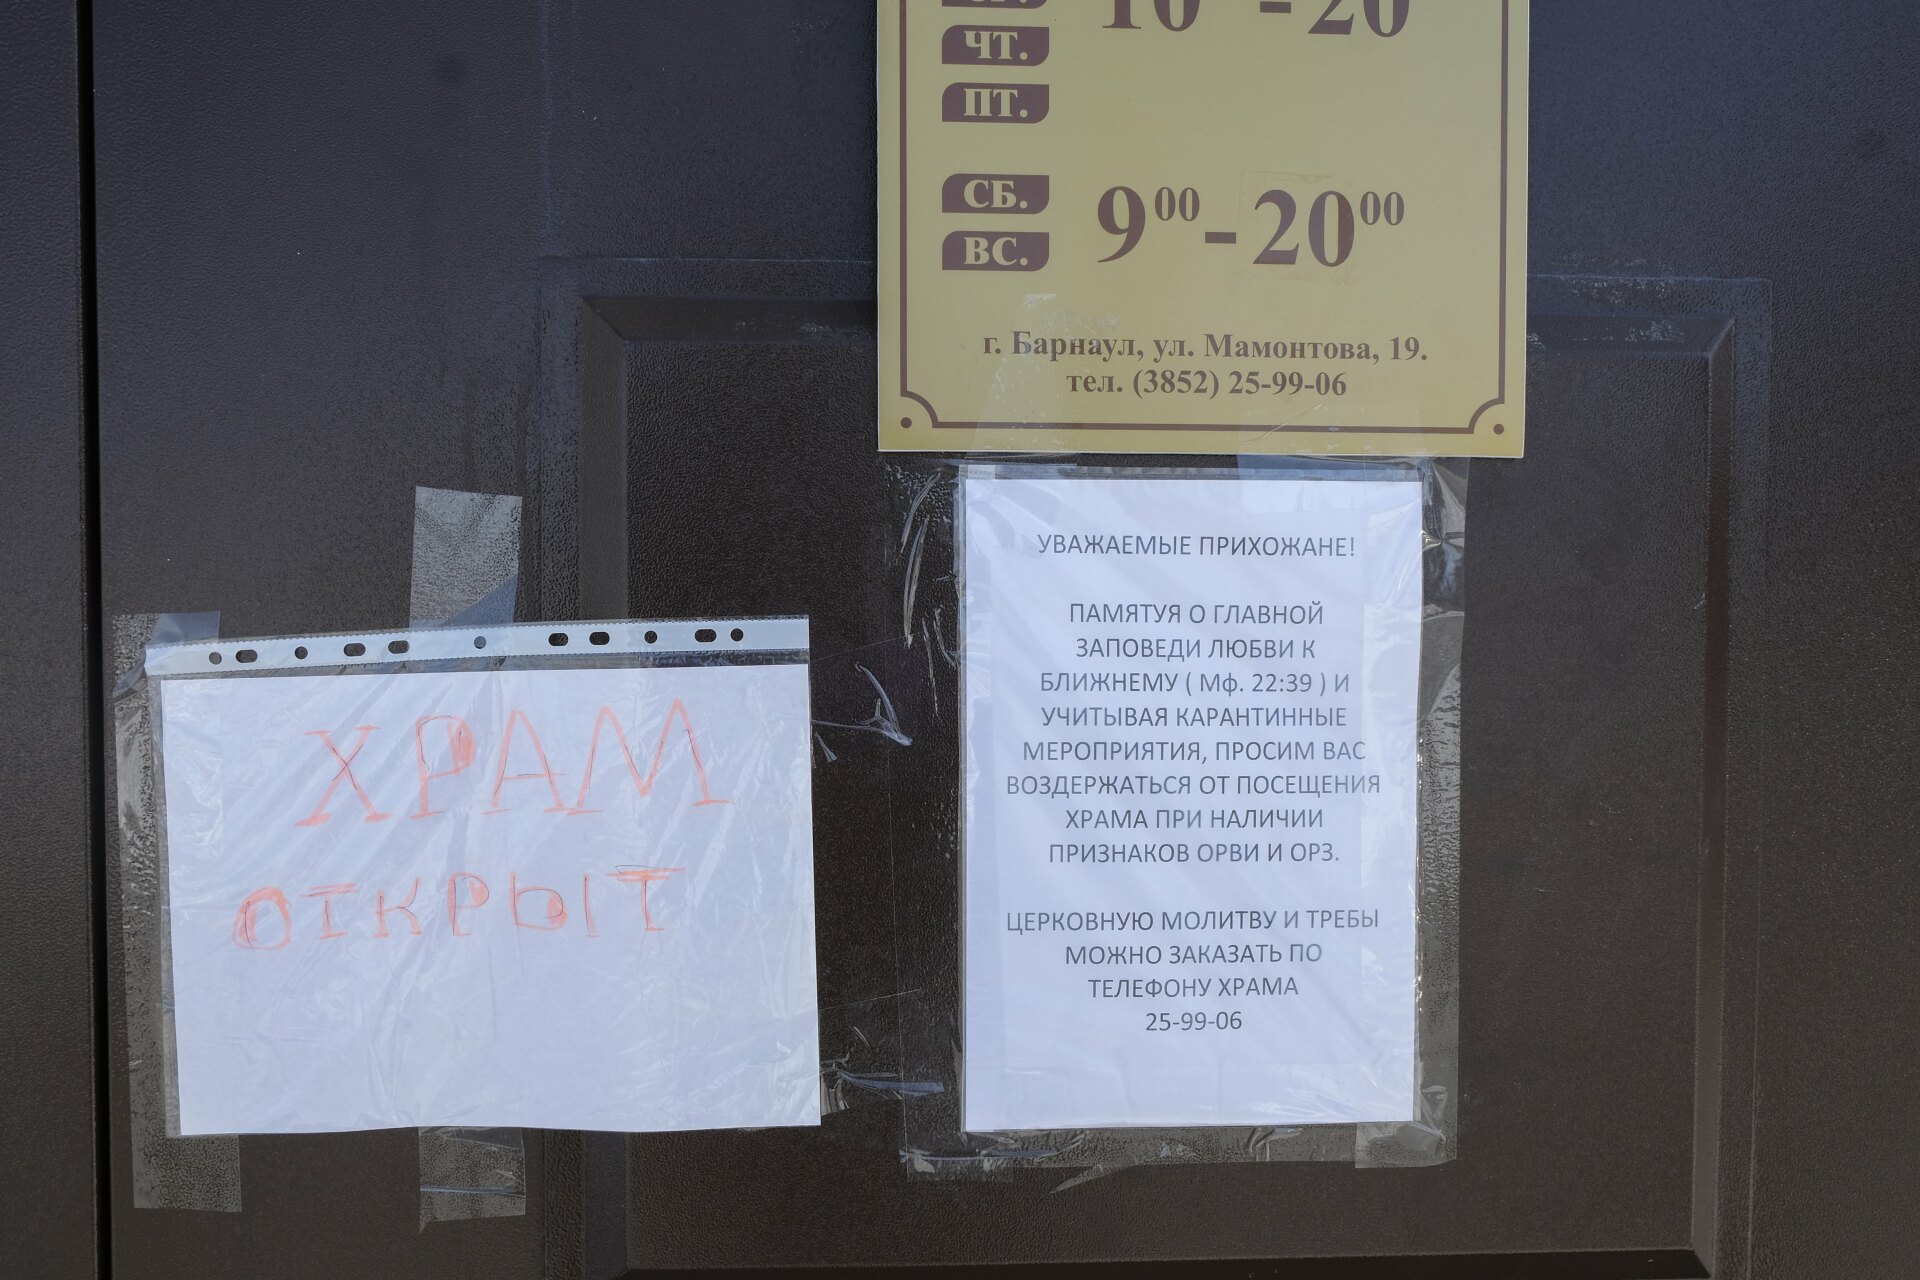 ЧТ.
ПТ.
СБ.
ВС.
9⁰⁰ - 20⁰⁰
г. Барнаул, ул. Мамонтова, 19.
тел. (3852) 25-99-06
УВАЖАЕМЫЕ ПРИХОЖАНЕ!
ПАМЯТУЯ О ГЛАВНОЙ
ЗАПОВЕДИ ЛЮБВИ К
БЛИЖНЕМУ ( Мф. 22:39 ) И
УЧИТЫВАЯ КАРАНТИННЫЕ
МЕРОПРИЯТИЯ, ПРОСИМ ВАС
ВОЗДЕРЖАТЬСЯ ОТ ПОСЕЩЕНИЯ
ХРАМА ПРИ НАЛИЧИИ
ПРИЗНАКОВ ОРВИ И ОРЗ.
ЦЕРКОВНУЮ МОЛИТВУ И ТРЕБЫ
МОЖНО ЗАКАЗАТЬ ПО
ТЕЛЕФОНУ ХРАМА
25-99-06
ХРАМ
ОТКРЫТ